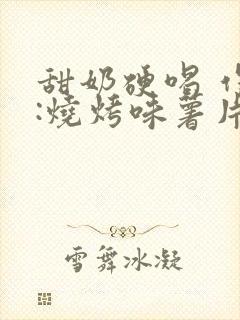 甜奶硬唱
:燒烤味薯片
雪舞冰凝